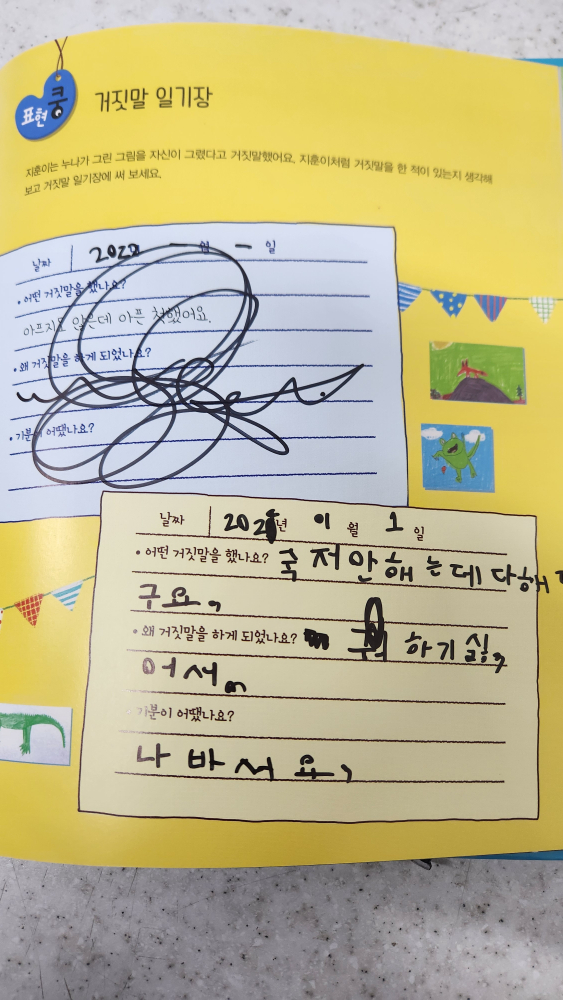 표현 쿵
거짓말 일기장
지훈이는 누나가 그린 그림을 자신이 그렸다고 거짓말했어요. 지훈이처럼 거짓말을 한 적이 있는지 생각해
보고 거짓말 일기장에 써 보세요.
날짜 월 일
• 어떤 거짓말을 했나요?
아프지도 않은데 아픈 척했어요.
• 왜 거짓말을 하게 되었나요?
• 기분이 어땠나요?
날짜 년 월 1 일
• 어떤 거짓말을 했나요? 숙저안해는데다해
구요,
• 왜 거짓말을 하게 되었나요? 하기싫,
어서
기분이 어땠나요?
나바서요,